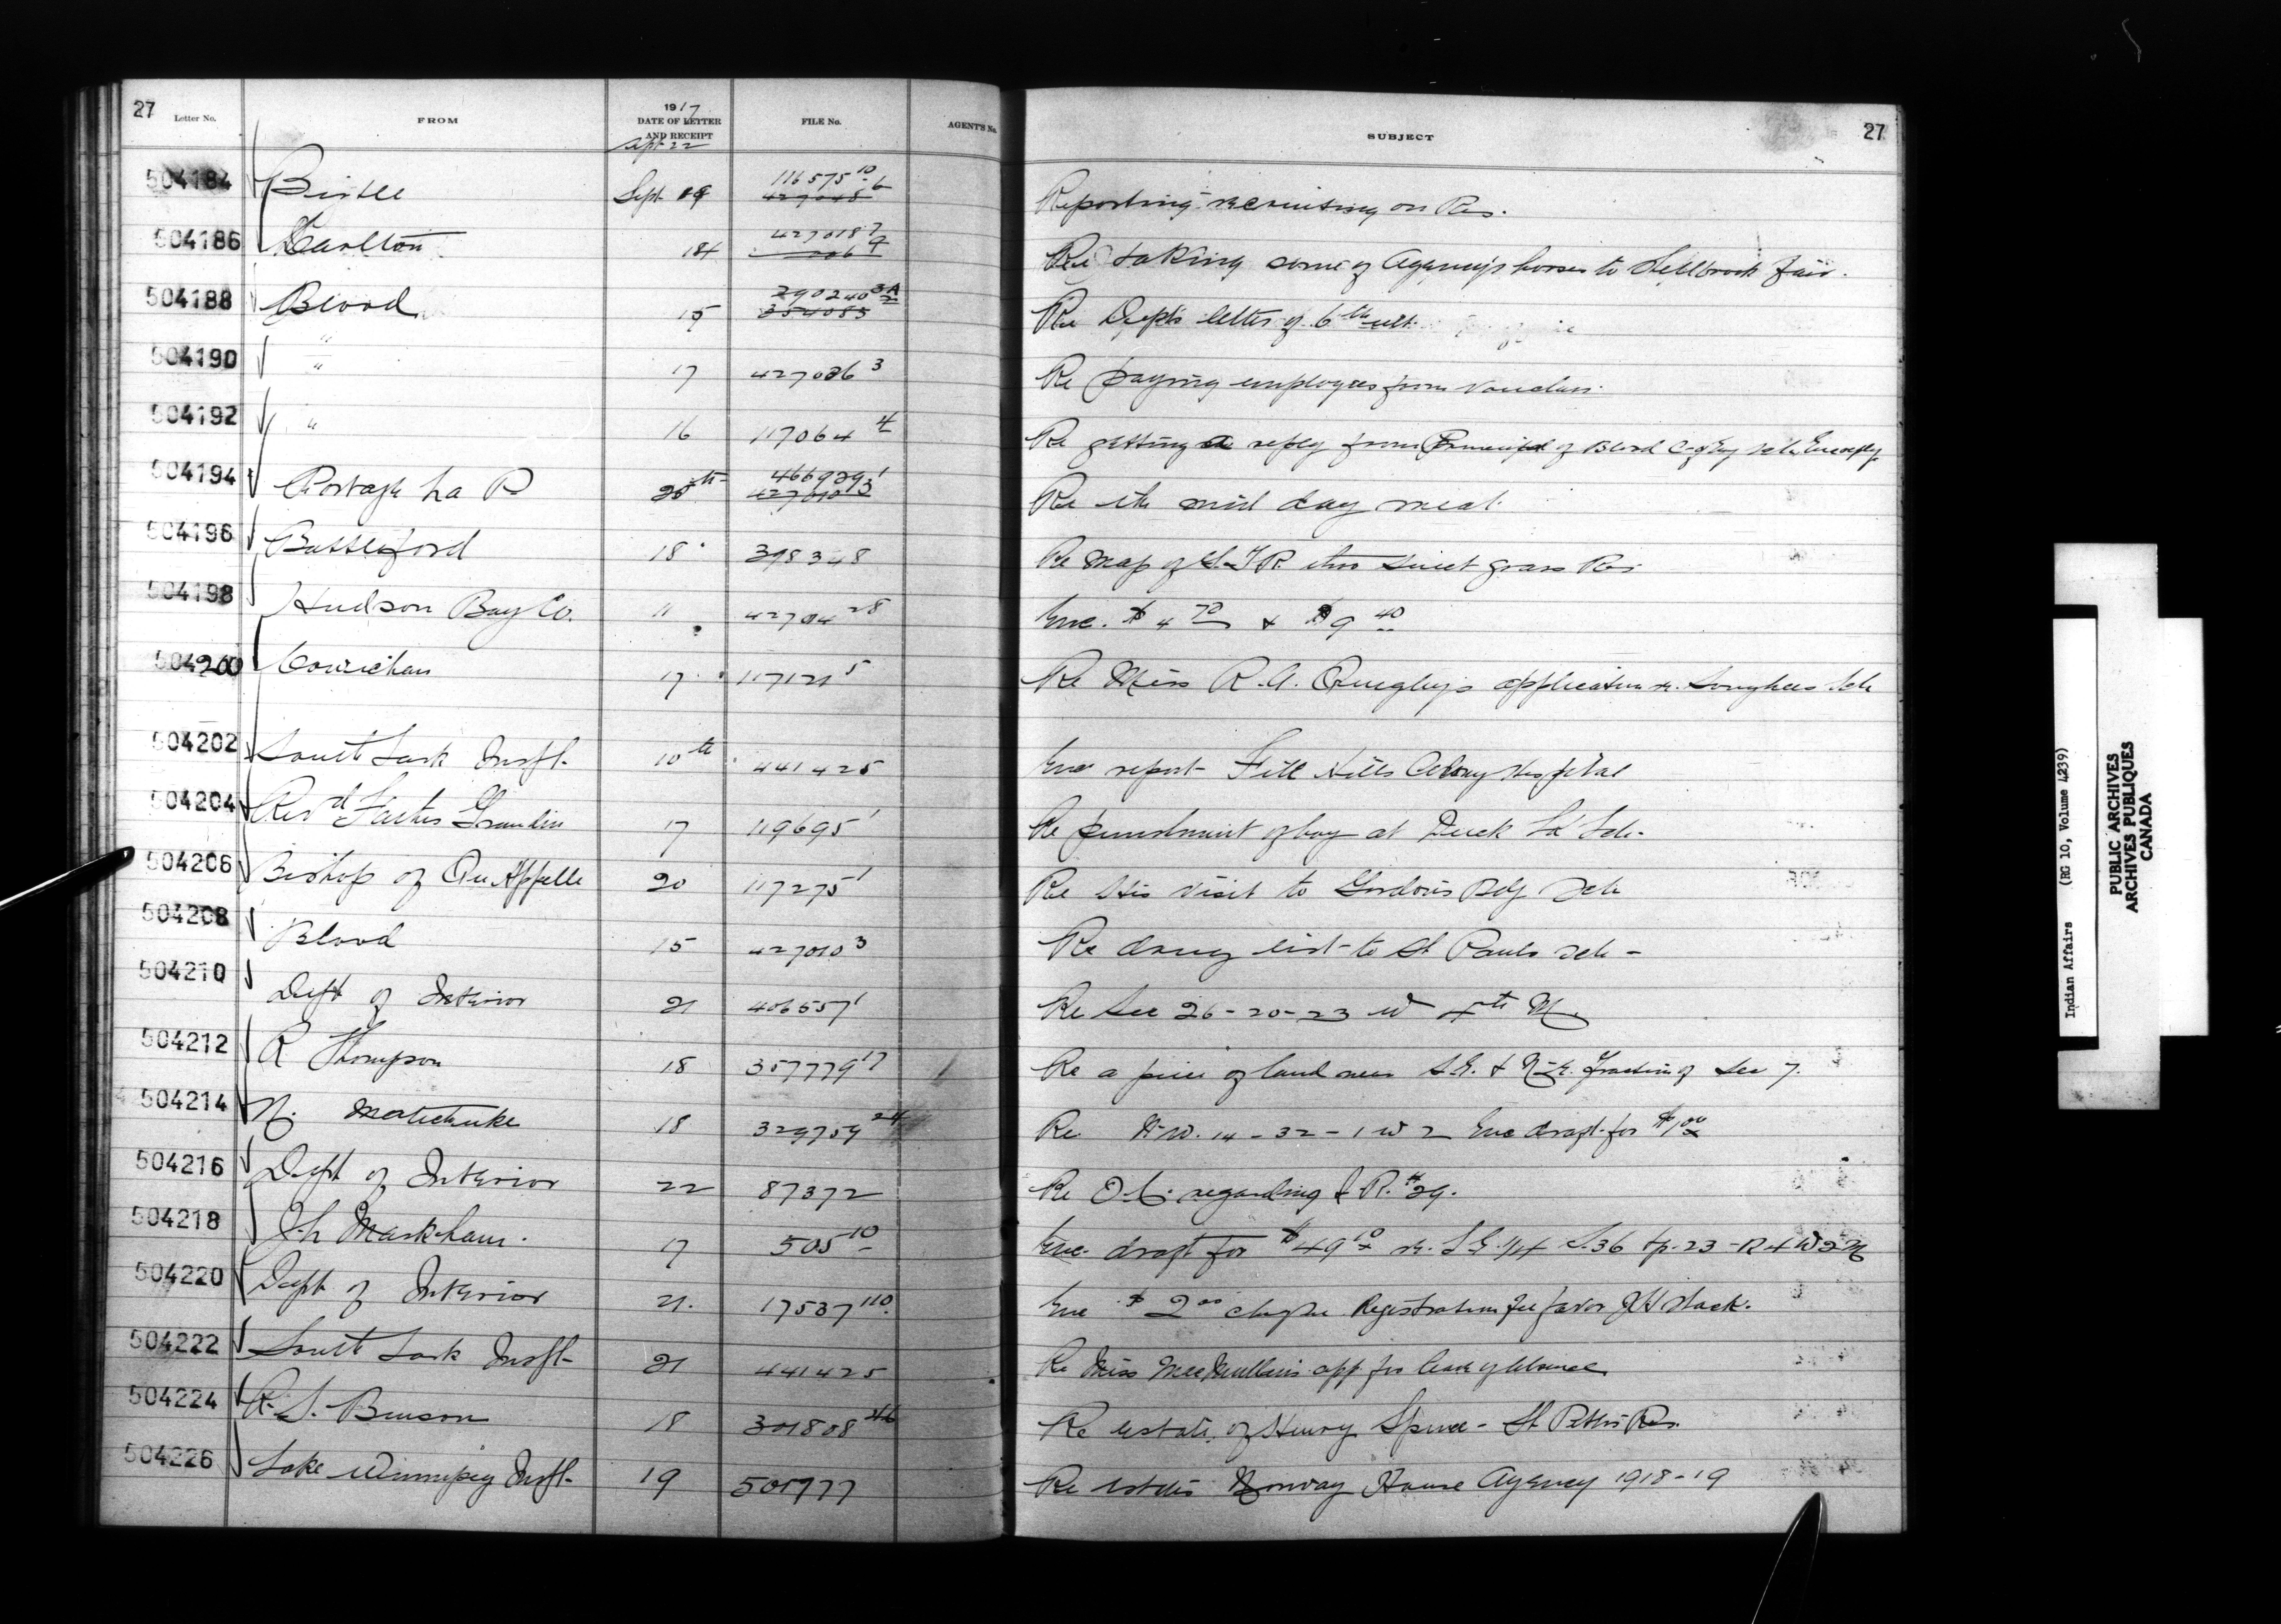 27 Letter No. FROM 1917 DATE OF LETTER AND RECEIPT FILE No. AGENT'S No. SUBJECT 27
Sept 22
504184 Birtle Sept 19 116575 10 427048 6 Reporting recruiting on Res.
504186 Carlton 18 427018 7 Re taking some of Agency's horses to Shellbrook Fair.
504188 Blood 15 290240 3A Re Dept's letter of 6th ult.
504190 " 17 427036 3 Re paying employees from vouchers.
504192 " 16 117064 4 Re getting a reply from Principal of Blood C of Eng Sch
504194 Portage La P 20th 466929 1 427010 3 Re the mid day meal.
504196 Battleford 18 398348 Re Map of thro Sweet grass Res
504198 Hudson Bay Co. 11 42704 28 Enc. $4 70 & $9 40
504200 Cowichan 17 117121 5 Re Miss R.A. Quigley's application re. Songhees Sch
504202 South Sask Inspt. 10th 441425 Enc report File Hills Colony Hospital
504204 Revd Father Grandin 17 119695 1 Re punishment of boy at Duck La Sch.
504206 Bishop of Qu'Appelle 20 117275 1 Re His visit to Gordon's Bdg Sch
504208 Blood 15 427010 3 Re drug list to St Pauls Sch -
504210 Dept of Interior 21 406557 1 Re Sec 26-20-23 W 4th M.
504212 R Thompson 18 357779 17 Re a piece of land near S.E. & N.E. Fraction of Sec 7.
504214 N. 18 329759 24 Re N.W. 14-32-1 W 2 Enc draft for $1 00
504216 Dept of Interior 22 87372 Re O.C. regarding I R. #29.
504218 J.L Markham. 17 505 10 Enc. draft for $49 10 re. S.E. 1/4 S.36 Tp. 23-R 4 W 2 M
504220 Dept of Interior 21. 17537 110. Enc $2 00 cheque Registration fee favor J H Stack.
504222 South Sask Inspt- 21 441425 Re Miss MacMullin's app for leave of absence
504224 R. S. Benson 18 301808 Re estate of Henry Spence - St Peter's Res.
504226 Lake Winnipeg Inspt- 19 501777 Re estes Norway House Agency 1918-19
Indian Affairs (RG 10, Volume 4239)
PUBLIC ARCHIVES
ARCHIVES PUBLIQUES
CANADA